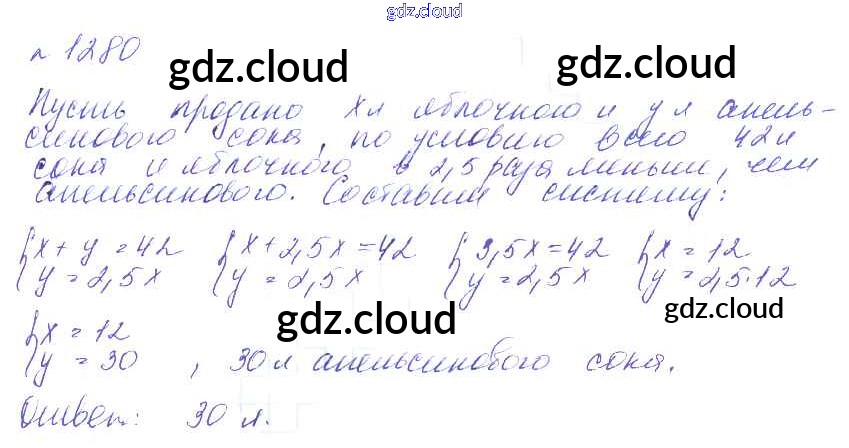 gdz.cloud
№ 1280
gdz.cloud gdz.cloud
Пусть продано x л яблочного и y л апель-
синового сока, по условию всего 42 л
сока и яблочного в 2,5 раза меньше, чем
апельсинового. Составим систему:
{x + y = 42 {x + 2,5x = 42 {3,5x = 42 {x = 12
{y = 2,5x {y = 2,5x {y = 2,5x {y = 2,5·12
gdz.cloud gdz.cloud
{x = 12
{y = 30 , 30 л апельсинового сока.
Ответ: 30 л.